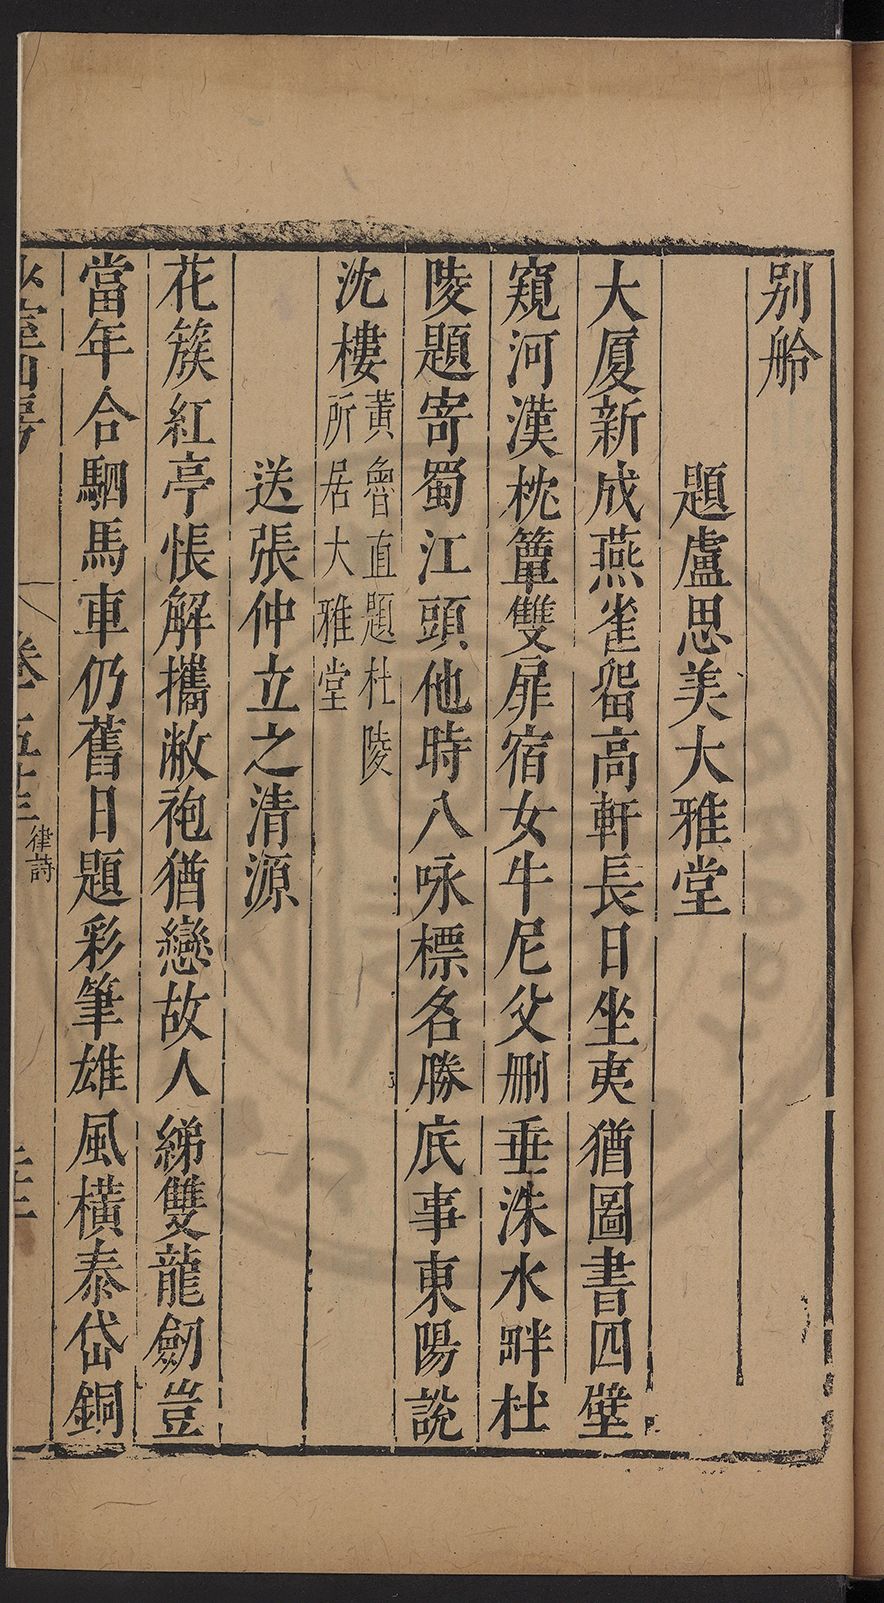 别舲
題盧思美大雅堂
大厦新成燕雀留高軒長日坐夷猶圖書四壁
窺河漢枕簟雙扉宿女牛尼父刪垂洙水畔杜
陵題寄蜀江頭他時八咏標名勝底事東陽說
沈樓黃魯直題杜陵
所居大雅堂
送張仲立之清源
花簇紅亭悵解攜敝袍猶戀故人綈雙龍劒豈
當年合駟馬車仍舊日題彩筆雄風橫泰岱銅
律詩